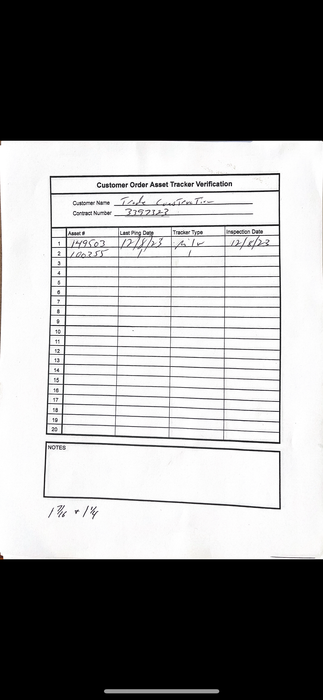 Customer Order Asset Tracker Verification
Customer Name Trade
Contract Number
Asset # Last Ping Date Tracker Type Inspection Date
1 149503 12/8/23 12/8/23
2 100355
3
4
5
6
7
8
9
10
11
12
13
14
15
16
17
18
19
20
NOTES
1 7/16 & 1 1/4